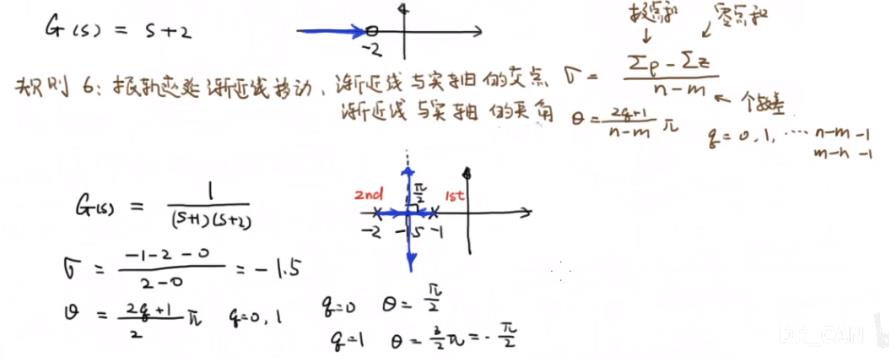 G(s) = s+2
-2
极点和 零点和
规则 6: 根轨迹延渐近线移动, 渐近线与实轴的交点 σ = Σp - Σz / n-m
← 个数差
渐近线与实轴的夹角 θ = 2q+1 / n-m π
q = 0, 1, ... n-m-1
m-n-1
G(s) = 1 / (s+1)(s+2)
2nd π/2 1st
-2 -1.5 -1
σ = -1-2-0 / 2-0 = -1.5
θ = 2q+1 / 2 π q=0, 1
q=0 θ = π/2
q=1 θ = 3/2 π = -π/2
DR_CAN